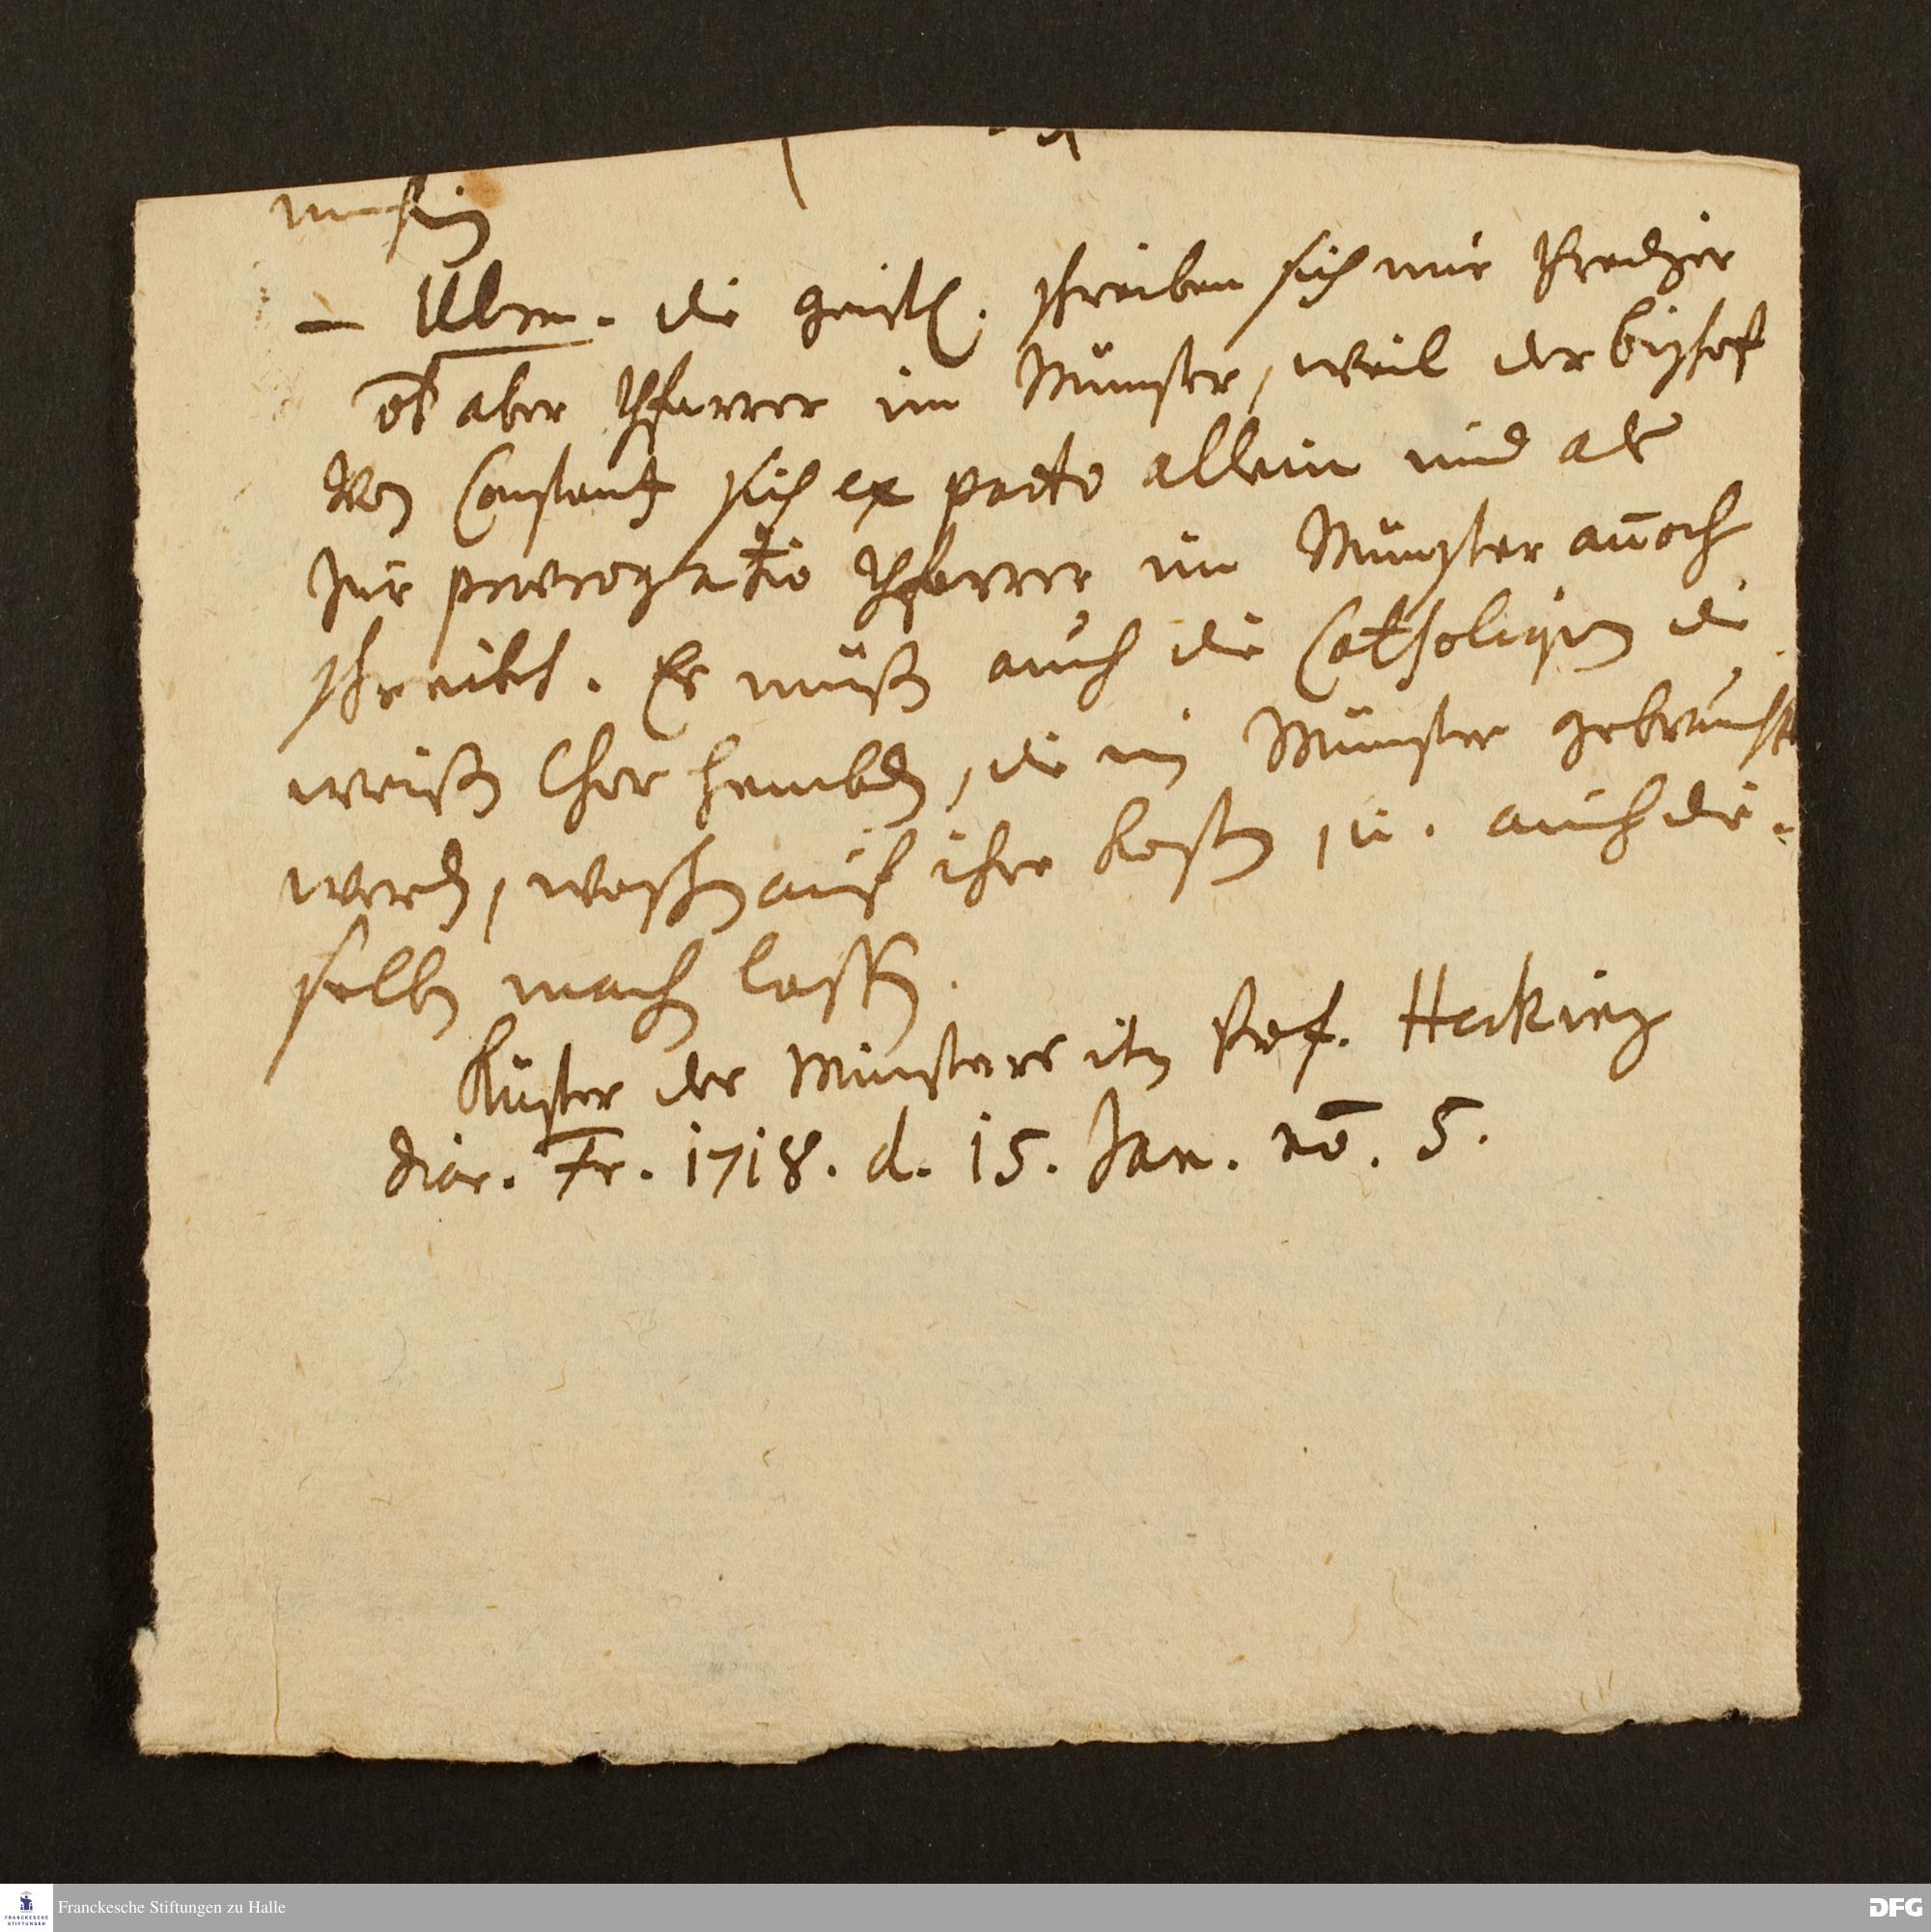 — Ulm. die geistl. schreiben sich nur Prediger
aber Pfarrer im Münster, weil der Bischoff
von Constantz sich ex pacto allein und als
zur prerogatio Pfarrer im Münster annoch
schreibt. Es müßen auch die Catholiquen die
weißen Chor hembden, die im Münster gebraucht
werden, waschen auf ihre Kosten, u. auch die-
selben machen lassen.
Küster des Münsters Prof. Hecking
diar. Fr. 1718. d. 15. Jan. no. 5.
Franckesche Stiftungen zu Halle
FRANCKESCHE
STIFTUNGEN
DFG